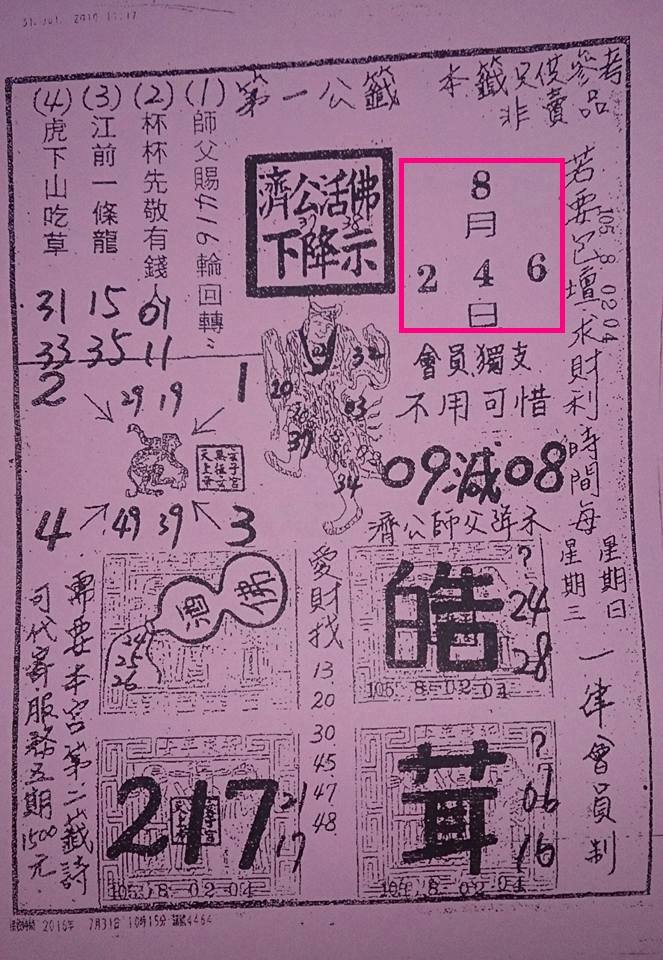 第一公籤
本籤只供參考
非賣品
(1)師父賜416輪回轉
(2)杯杯先敬有錢人
(3)江前一條龍
(4)虎下山吃草
01
11
15
35
31
33
濟公活佛
下降示
8
月
2 4 6
日
會員獨支
不用可惜
09減08
濟公師父
若要
壇求財利時間每
星期日
星期三
一律會員制
105 8 02 04
32
20
03
39
34
2
29 19
1
4
49 39
3
佛
24
25
26
愛財找
13
20
30
45
47
48
皓
?
24
28
105 8-02-04
217
21
17
105 8-02-04
茸
?
06
16
8-02-04
需要本宮第二籤詩
可代寄服務五期1500元
2016年 7月31日 10時15分